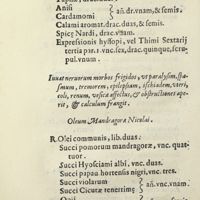 Anisi
Cardamomi } añ.dr.vnam,& semis.
Calami aromat.drac.duas,& semis.
Spicę Nardi, drac.vnam.
Expressionis hyssopi, vel Thimi Sextarij
tertia pars.1.vnc.sex,drac.quinque,scru-
pul.vnum.
Iuuat neruorum morbos frigidos, vt paralysim, spa-
smum, tremorem, epilepsiam, ischiadem, vteri,
coli, renum, vesicæ affectus, & obstructiones aperit,
& calculum frangit.
Oleum Mandragoræ Nicolai.
R.Olei communis, lib.duas.
Succi pomorum mandragoræ, vnc.qua-
tuor.
Succi Hyosciami albi, vnc.duas.
Succi papau.hortensis nigri, vnc.tres.
Succi violarum
Succi Cicutæ tenerrimę } añ.vnc.vnam.